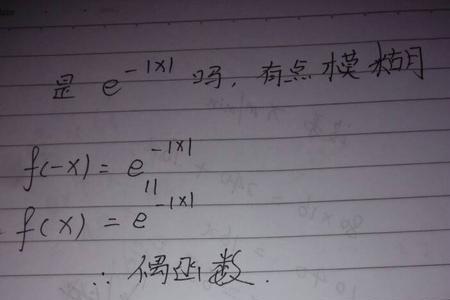 是 e^{-|x|} 吗,有点模糊
f(-x) = e^{-|x|}
||
f(x) = e^{-|x|}
∴ 偶函数.